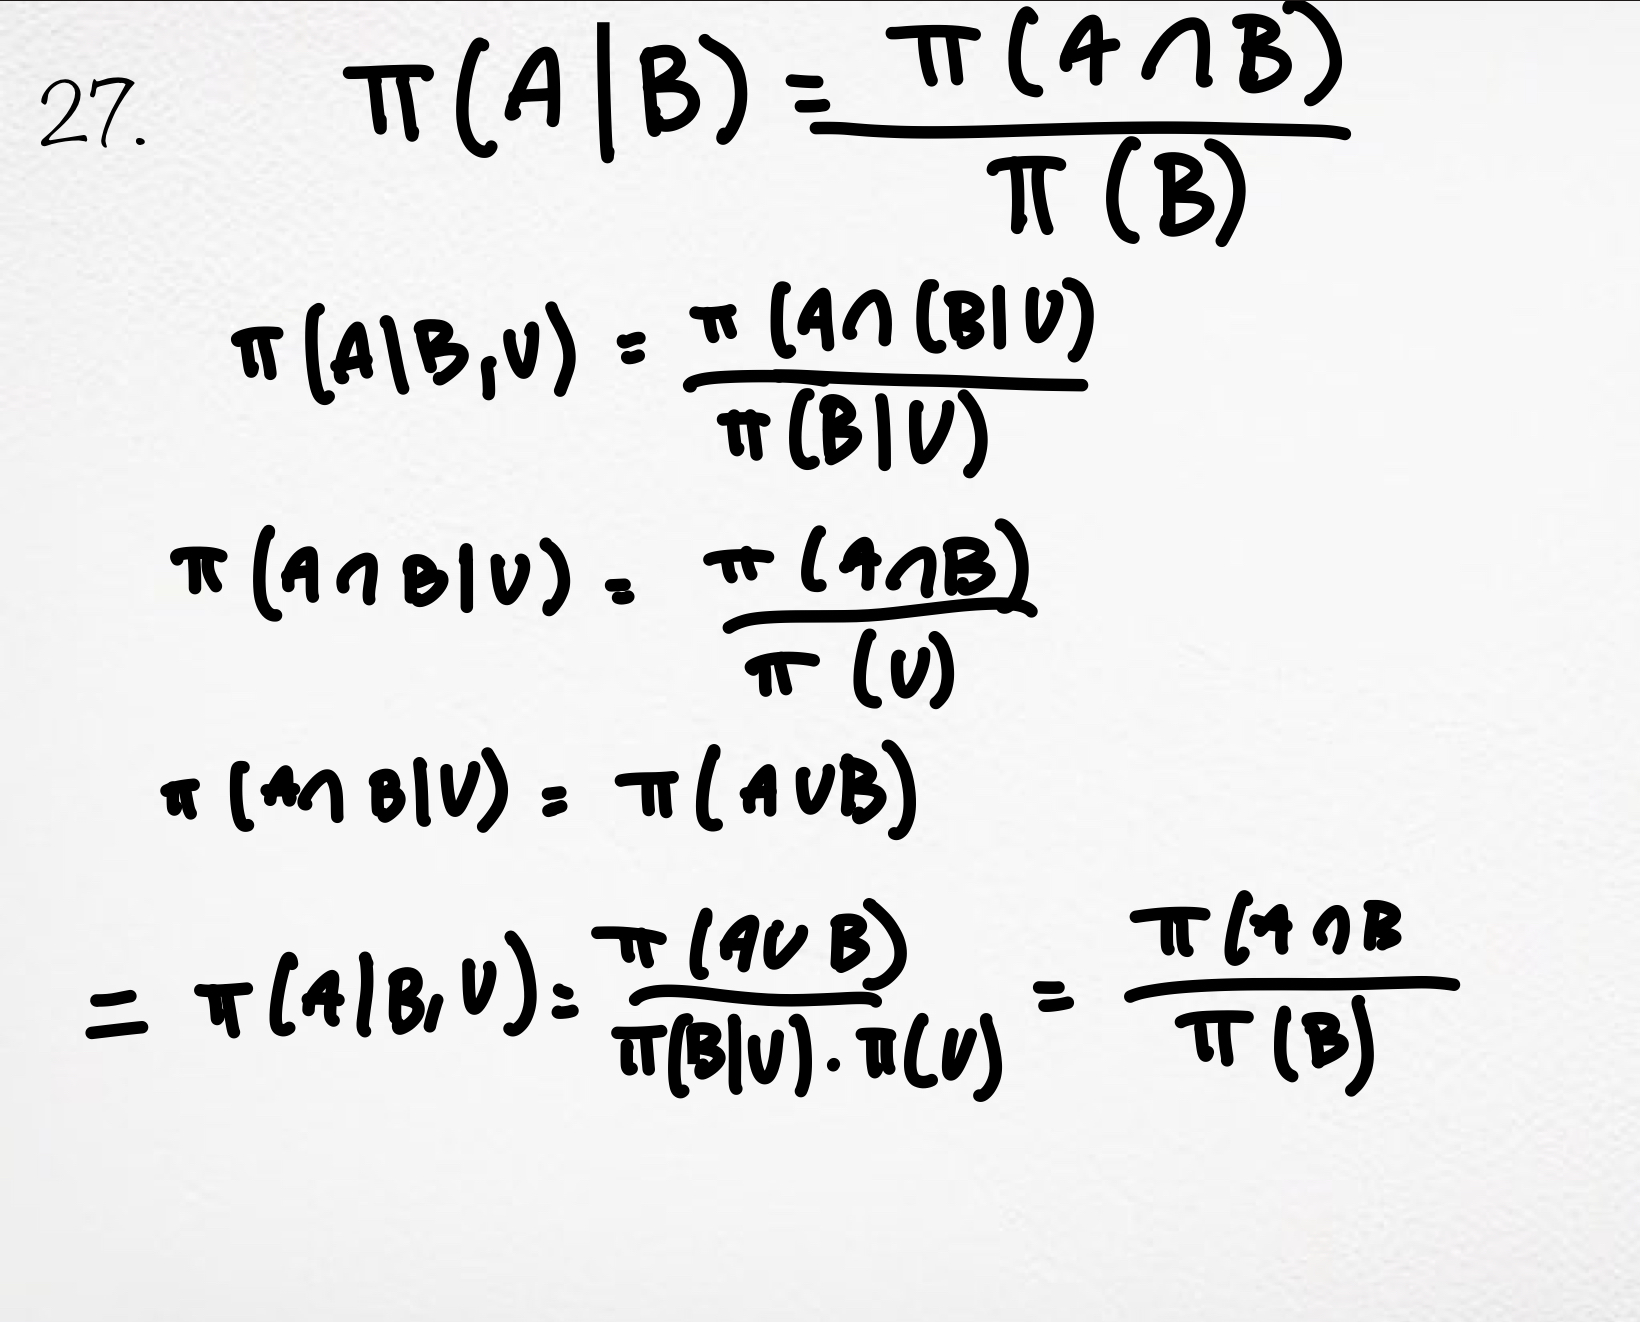 27. π(A|B) = π(A∩B) / π(B)
π(A|B,U) = π(A∩(B|U) / π(B|U)
π(A∩B|U) = π(A∩B) / π(U)
π(A∩B|U) = π(A∪B)
= π(A|B,U) = π(A∪B) / π(B|U)·π(U) = π(A∩B / π(B)